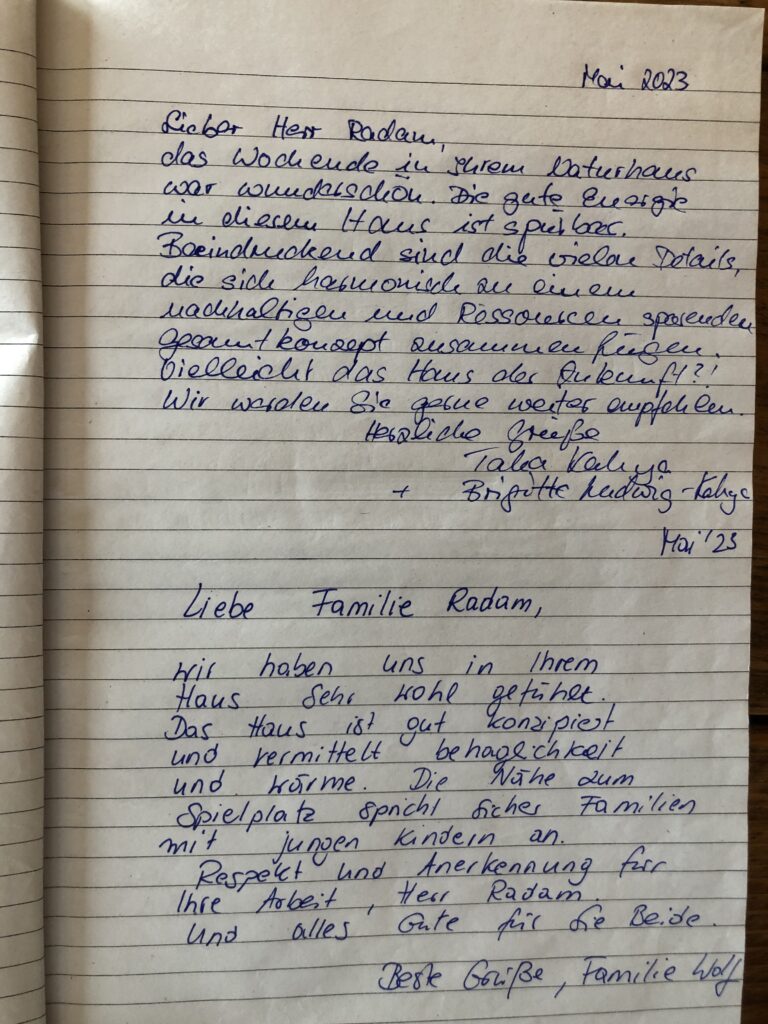 Mai 2023
Lieber Herr Radam,
das Wochende in Ihrem Naturhaus
war wunderschön. Die gute Energie
in diesem Haus ist spürbar.
Beeindruckend sind die vielen Details,
die sich harmonisch zu einem
nachhaltigen und Ressourcen sparenden
Gesamtkonzept zusammen fügen.
Vielleicht das Haus der Zukunft?!
Wir werden Sie gerne weiter empfehlen.
Herzliche Grüße
Kahya
+ Brigitte Ludwig-Kahya
Mai '23
Liebe Familie Radam,
wir haben uns in Ihrem
Haus sehr wohl gefühlt.
Das Haus ist gut konzipiert
und vermittelt behaglichkeit
und wärme. Die Nähe zum
Spielplatz spricht sicher Familien
mit jungen Kindern an.
Respekt und Anerkennung für
Ihre Arbeit, Herr Radam.
Und alles Gute für Sie Beide.
Beste Grüße, Familie Wolf